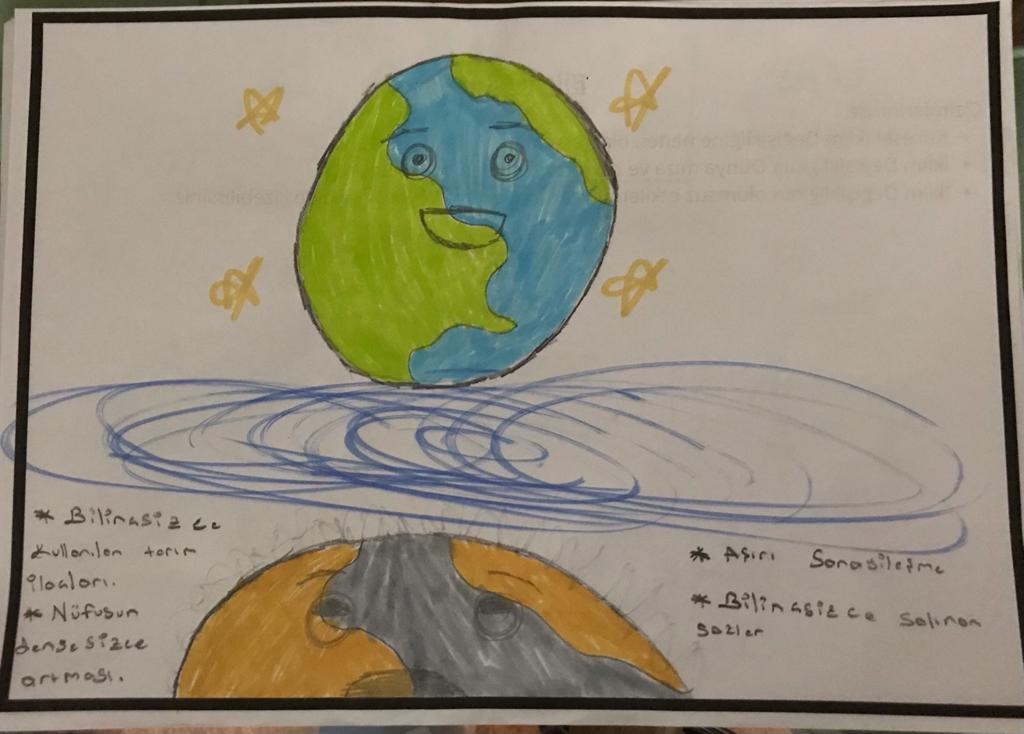 * Bilinçsizce
kullanılan tarım
ilaçları.
* Nüfusun
dengesizce
artması.
* Aşırı Sanayileşme
* Bilinçsizce salınan
gazlar